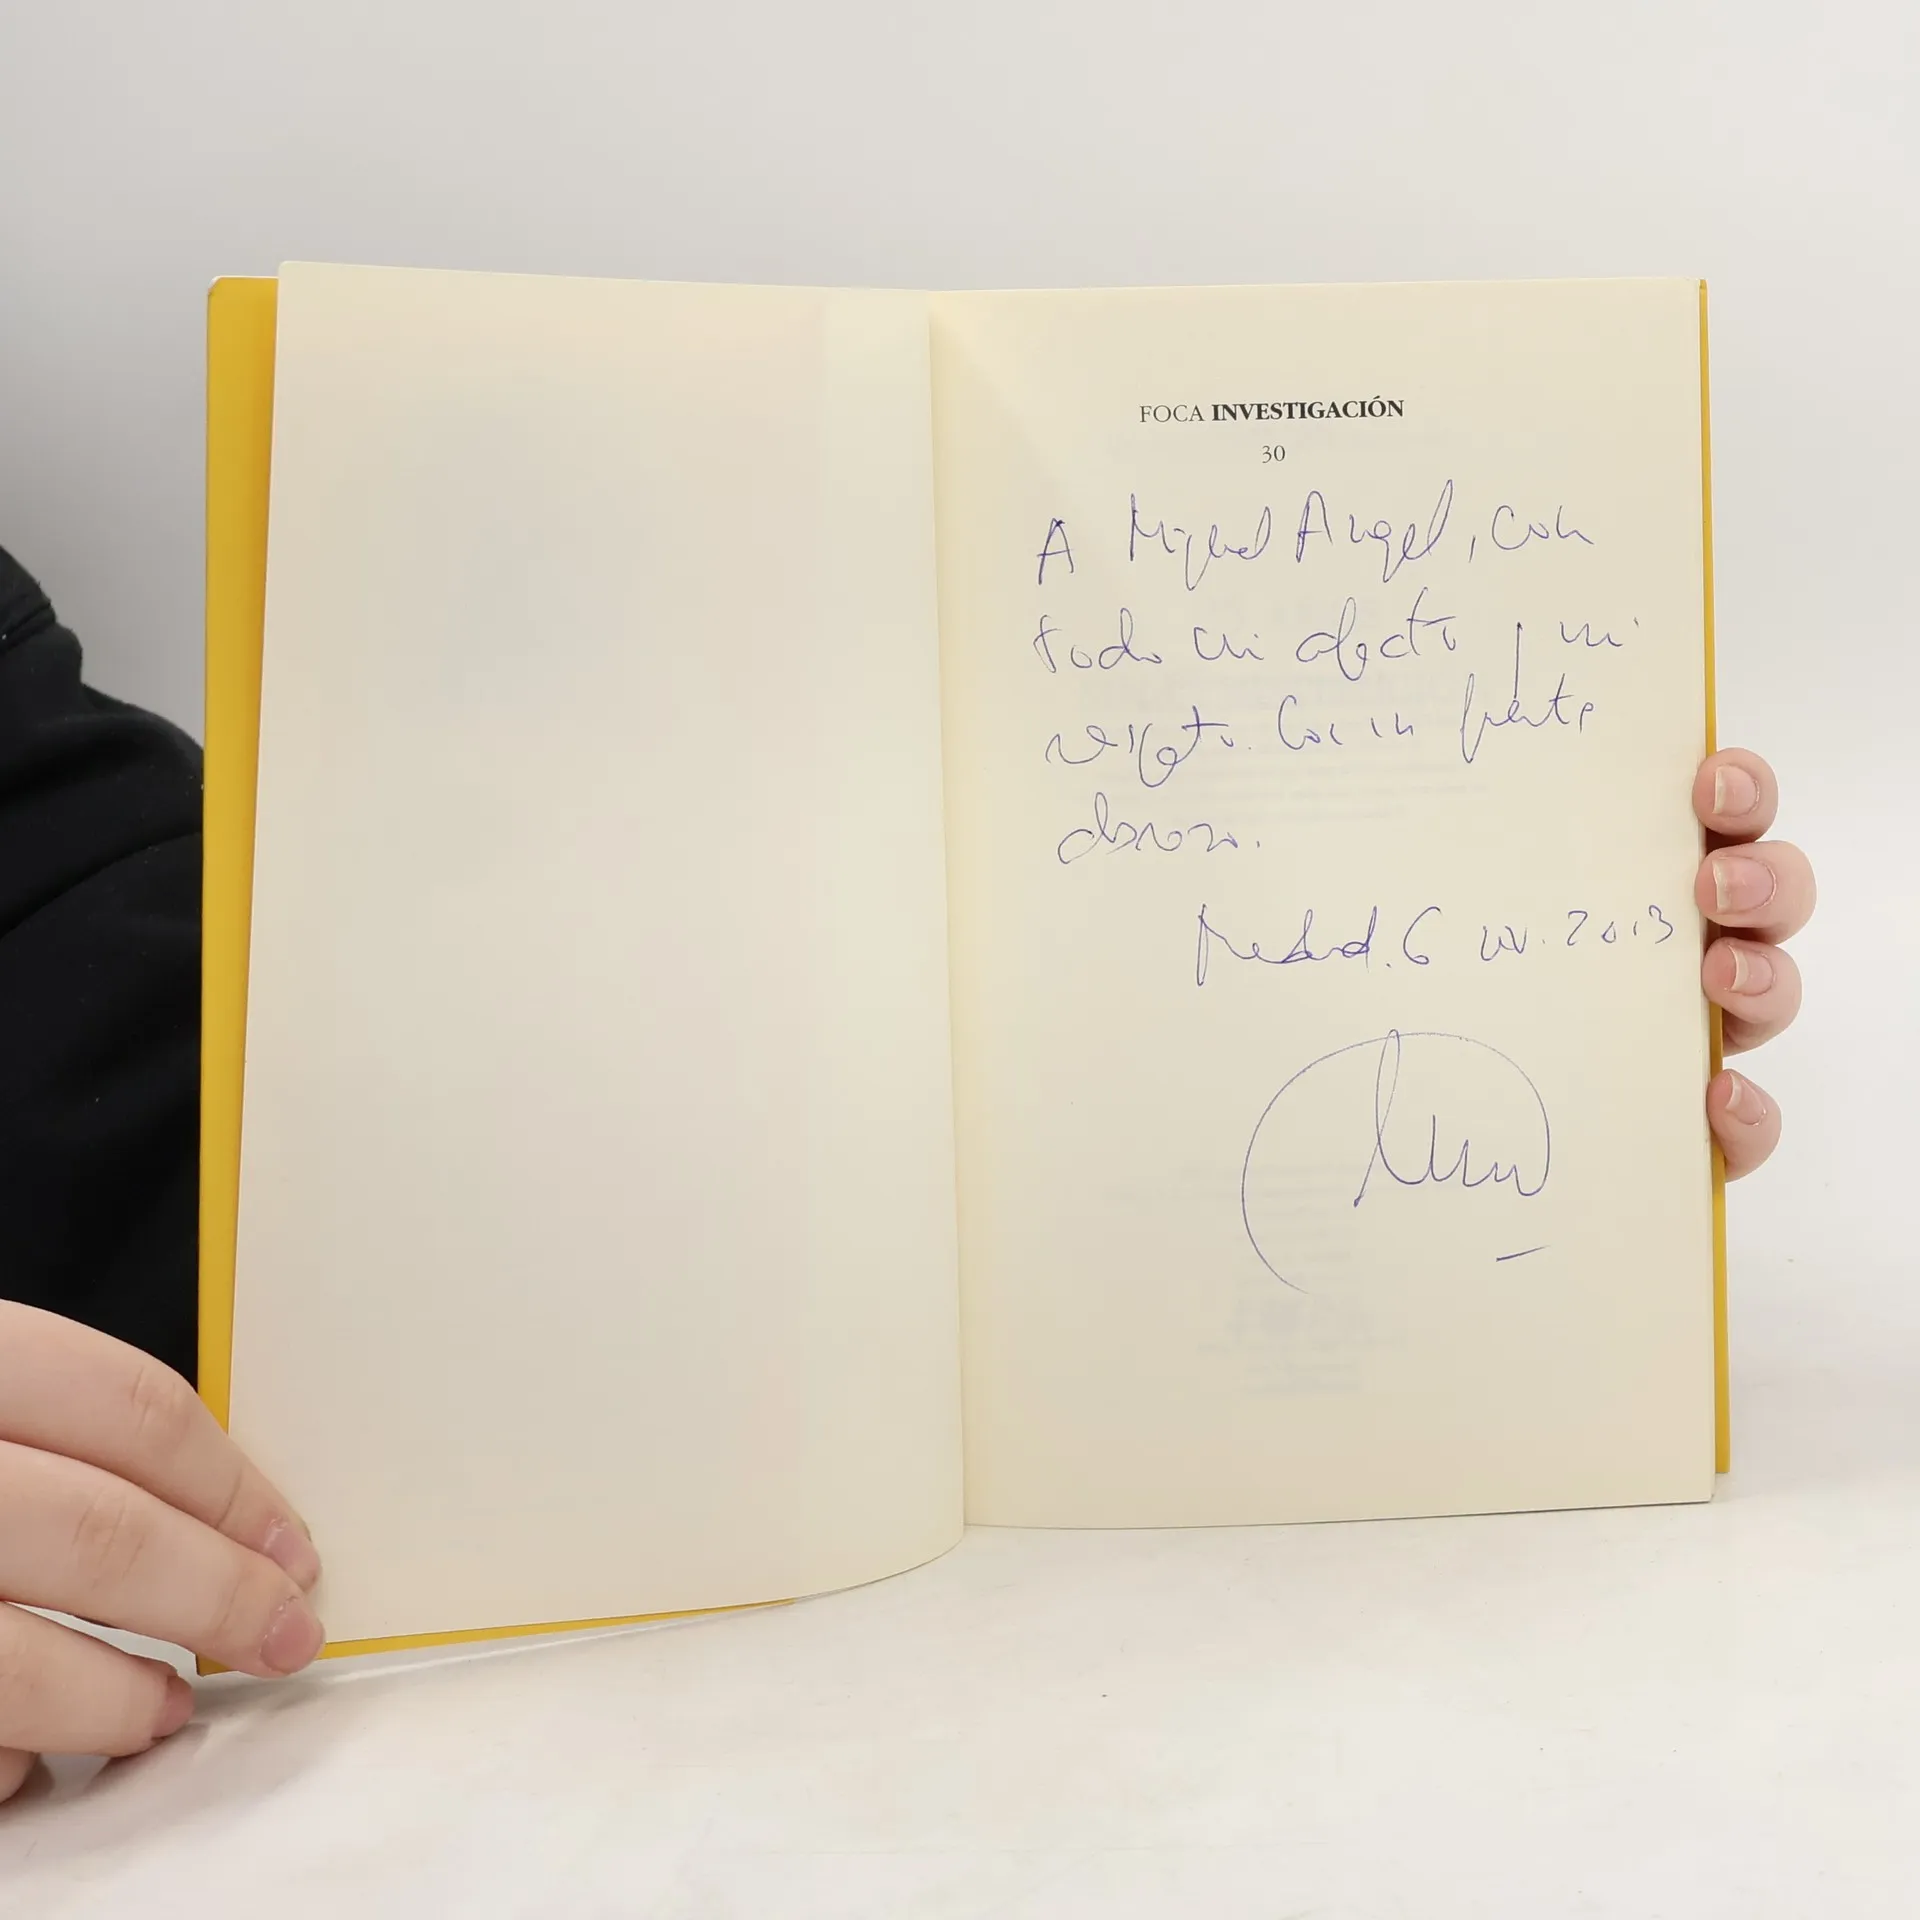 FOCA INVESTIGACIÓN
30
A Miguel Angel, con
todo mi afecto y mi
respeto. Con un fuerte
abrazo.
Madrid. 6 nov. 2013